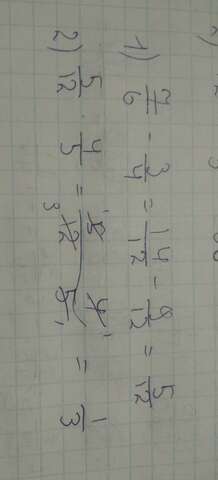 1) 7/6 - 3/4 = 14/12 - 9/12 = 5/12
2) 5/12 · 4/5 = 5 4/12 5 = 1/3